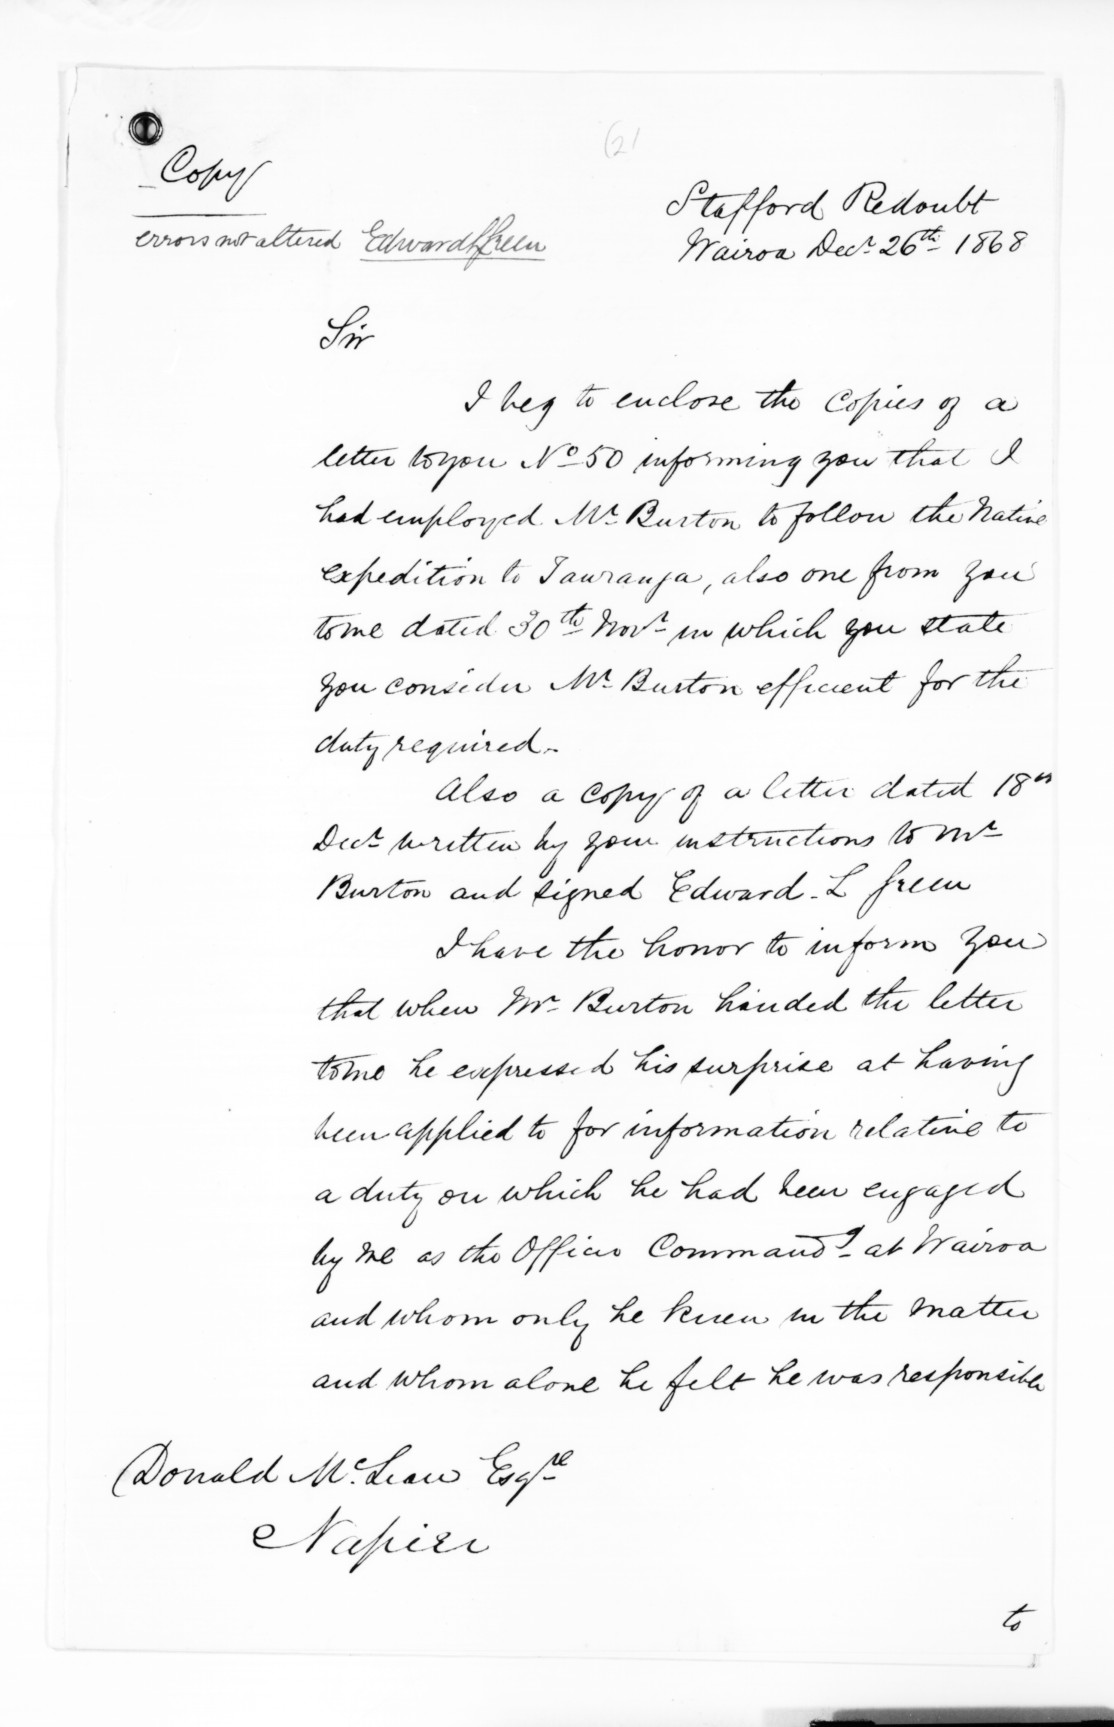 (2)
Copy
errors not altered Edward L Green
Stafford Redoubt
Wairoa Decr 26th 1868
Sir
I beg to enclose the copies of a
letter to you No 50 informing you that I
had employed Mr Burton to follow the Native
expedition to Tauranga, also one from you
to me dated 30th Novr in which you state
you consider Mr Burton efficient for the
duty required.
Also a copy of a letter dated 18th
Decr written by your instructions to Mr
Burton and signed Edward L Green
I have the honor to inform you
that when Mr Burton handed the letter
to me he expressed his surprise at having
been applied to for information relative to
a duty on which he had been engaged
by me as the Officer Commandg at Wairoa
and whom only he knew in the matter
and whom alone he felt he was responsible
Donald McLean Esqre
Napier
to